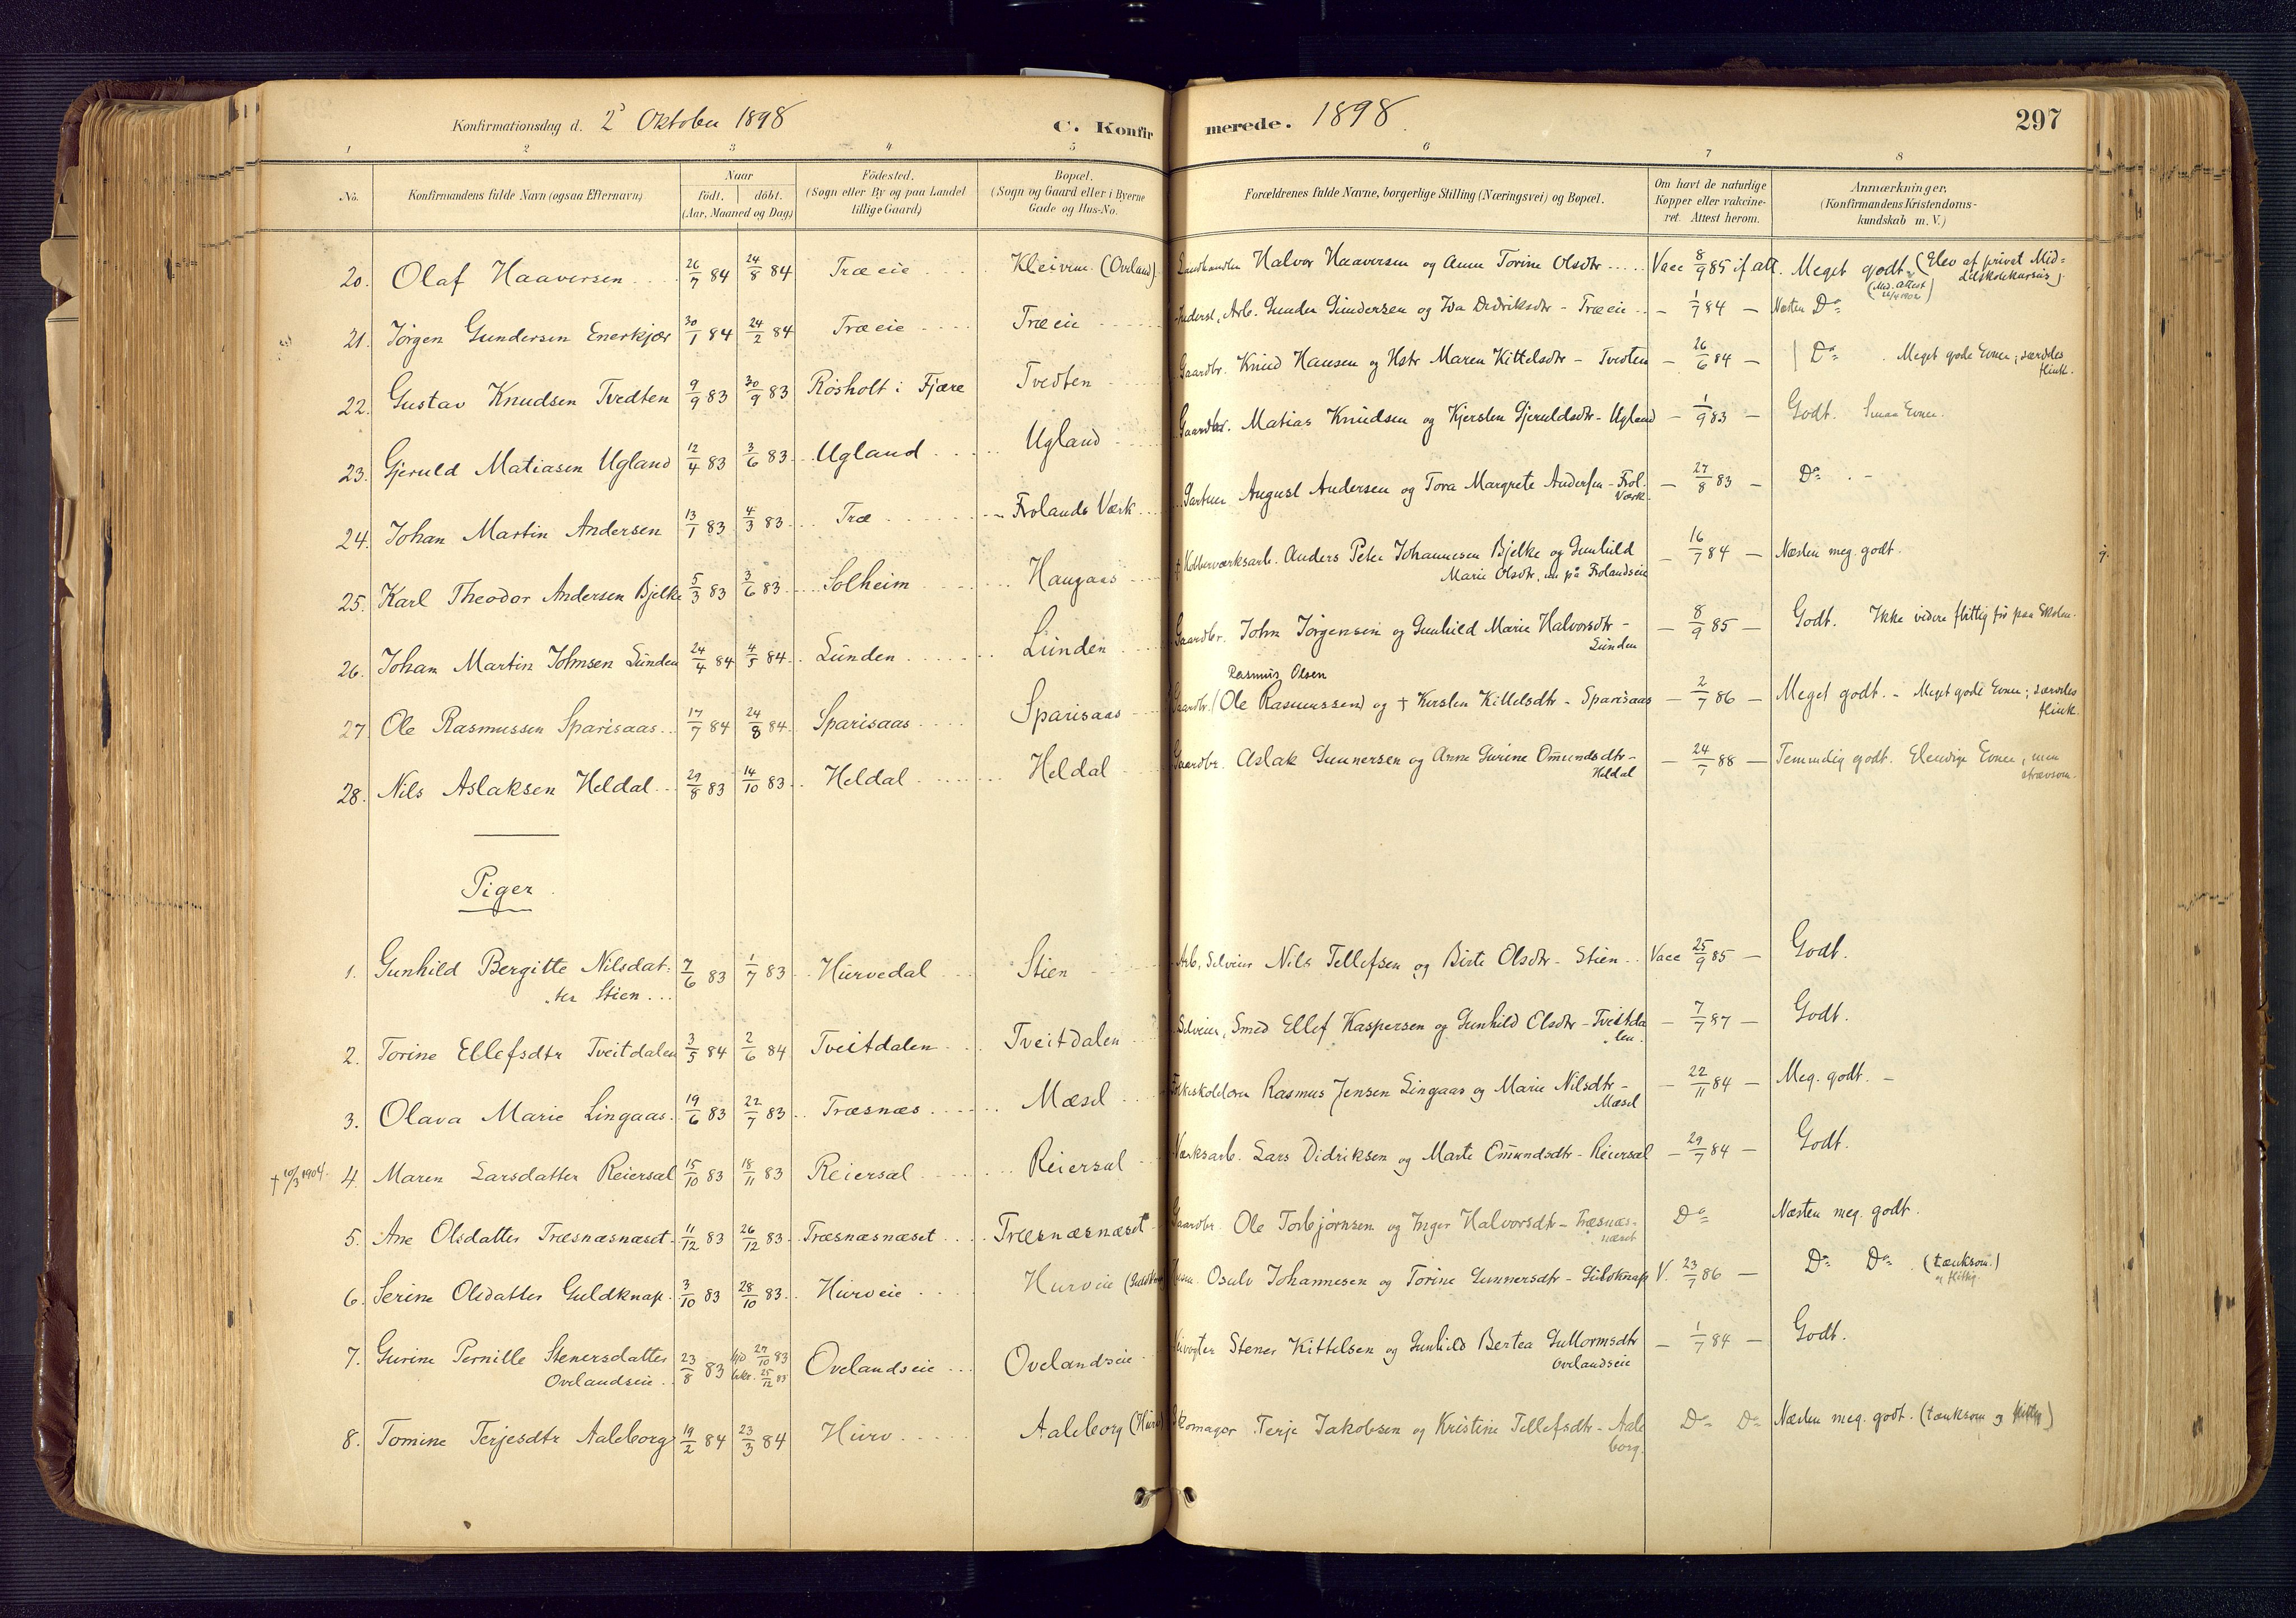 Konfirmationsdag d. 2 Oktober 1898 C. Konfirmerede. 1898 297
1 2 3 4 5 6 7 8
No. Konfirmandens fulde Navn (ogsaa Efternavn) Naar födt. döbt. (Aar, Maaned og Dag) Födested. (Sogn eller By og paa Landet tillige Gaard) Bopæl. (Sogn og Gaard eller i Byerne Gade og Hus-No. Forældrenes fulde Navne, borgerlige Stilling (Næringsvei) og Bopæl. Om havt de naturlige Kopper eller vakcineret. Attest herom. Anmærkninger. (Konfirmandens Kristendomskundskab m. V.)
20. Olaf Haaversen 26/7 84 24/8 84 Træeie Kleivene (Oveland) Landhandler Halvor Haaversen og Anne Torine Olsdtr Vacc 8/9 85 if. att. Meget godt (Elev af privat Middelskolekursus)
21. Jörgen Gundersen Enerkjær 30/1 84 24/2 84 Træeie Træeie Inderst, Arb. Gunder Gundersen og Ida Didriksdtr - Træeie - 1/7 84 - Næsten Do
22. Gustav Knudsen Tvedten 9/9 83 30/9 83 Rösholt i Fjære Tvedten Gaardbr. Knud Hansen og Hstr Maren Kittelsdtr - Tvedten - 26/6 84 - Do Meget gode Evner; særdeles flink.
23. Gjeruld Matiasen Ugland 12/4 83 3/6 83 Ugland Ugland Gaardbr. Matias Knudsen og Kjersten Gjeruldsdtr - Ugland - 1/9 83 - Godt. Smaa Evner.
24. Johan Martin Andersen 13/1 83 4/3 83 Træ Frolands Værk Gartner August Andersen og Tora Margrete Andersen - Frol. Værk - 27/8 83 - Do -
25. Karl Theodor Andersen Bjelke 5/3 83 3/6 83 Solheim Haugaas Anders Peter Johannesen Bjelke og Gunhild Marie Olsdtr, nu på Frolandseie - 16/7 84 - Næsten meg. godt.
26. Johan Martin Johnsen Lunden 24/4 84 4/5 84 Lunden Lunden Gaardbr. John Jörgensen og Gunhild Marie Halvorsdtr - Lunden - 8/9 85 - Godt. Ikke videre flittig för paa Skolen.
27. Ole Rasmussen Sparisaas 17/7 84 24/8 84 Sparisaas Sparisaas Gaardbr. Rasmus Olsen (Ole Rasmussen) og † Kirsten Kittelsdtr - Sparisaas - 2/7 86 - Meget godt. - Meget gode Evner; særdeles flink.
28. Nils Aslaksen Heldal 29/8 83 14/10 83 Heldal Heldal Gaardbr. Aslak Gunnersen og Anne Gurine Omundsdtr - Heldal - 24/7 88 - Temmelig godt. Elendige Evner, men strævsom.
Piger
1. Gunhild Bergitte Nilsdatter Stien 7/6 83 1/7 83 Hurvedal Stien Arb, Selveier Nils Tellefsen og Birte Olsdtr - Stien Vacc 25/9 85 - Godt.
2. Torine Ellefsdtr Tveitdalen 3/5 84 2/6 84 Tveitdalen Tveitdalen Selveier, Smed Ellef Kaspersen og Gunhild Olsdtr - Tveitdalen - 7/7 87 - Godt.
3. Olava Marie Lingaas 19/6 83 22/7 83 Træsnæs Mæsel Rasmus Jensen Lingaas og Marie Nilsdtr - Mæsel - 22/11 84 - Meg. godt. -
† 10/3 1904. 4. Maren Larsdatter Reiersøl 15/10 83 18/11 83 Reiersøl Reiersøl Værksarb. Lars Didriksen og Marte Omundsdtr - Reiersøl - 29/7 84 - Godt.
5. Ane Olsdatter Træsnæsnæset 11/12 83 26/12 83 Træsnæsnæset Træsnæsnæset Gaardbr. Ole Torbjörnsen og Inger Halvorsdtr - Træsnæsnæset Do Næsten meg. godt.
6. Serine Olsdatter Guldknap 3/10 83 28/10 83 Hurveie Hurveie Osulv Johannesen og Torine Gunnersdtr - Guldknap V. 23/7 86 - Do Do (tænksom.) og flittig.
7. Gurine Pernille Stenersdatter Ovelandseie 23/8 83 hjd 27/10 83 bekr. 25/12 83 Ovelandseie Ovelandseie Stener Kittelsen og Gunhild Bertea Guttormsdtr Ovelandseie - 1/7 84 - Godt.
8. Tomine Terjesdtr Aaleborg 19/2 84 23/3 84 Hurv Aaleborg (Hurv) Skomager Terje Jakobsen og Kristine Tellefsdtr - Aaleborg. Do Do Næsten meg. godt. (tænksom og flittig)